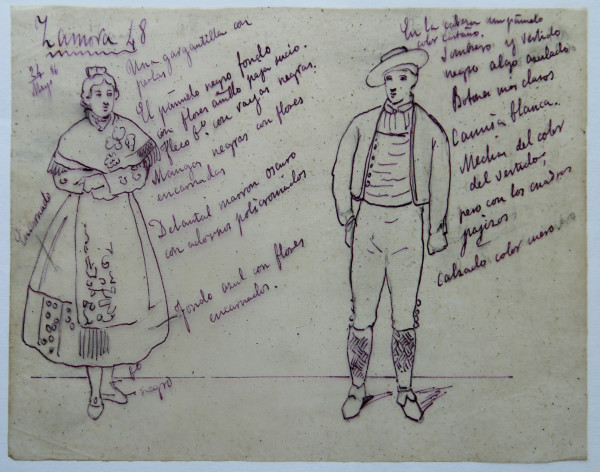 Zamora 48
Mayo
Una gargantilla con
El pañuelo negro fondo
con flores amllo paja sucio.
fleco bº con rayas negras.
Mangas negras con flores
encarnadas
Delantal marron oscuro
con adornos policromados
Encarnado
Fondo azul con flores
encarnadas.
negro
En la cabeza un pañuelo
color castaño.
Sombrero y vestido
negro algo azulado
Botones mas claros
Camisa blanca.
Medias del color
del vestido,
pero con los cuadros
pajizos
Calzado color cuero